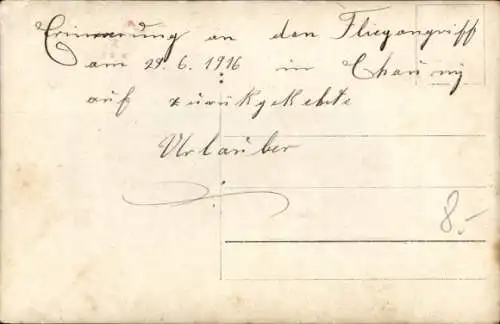 Erinnerung an den Fliegangriff
am 29.6.1916 in Chauny
auf zurükgekehte
Urlauber
8.-